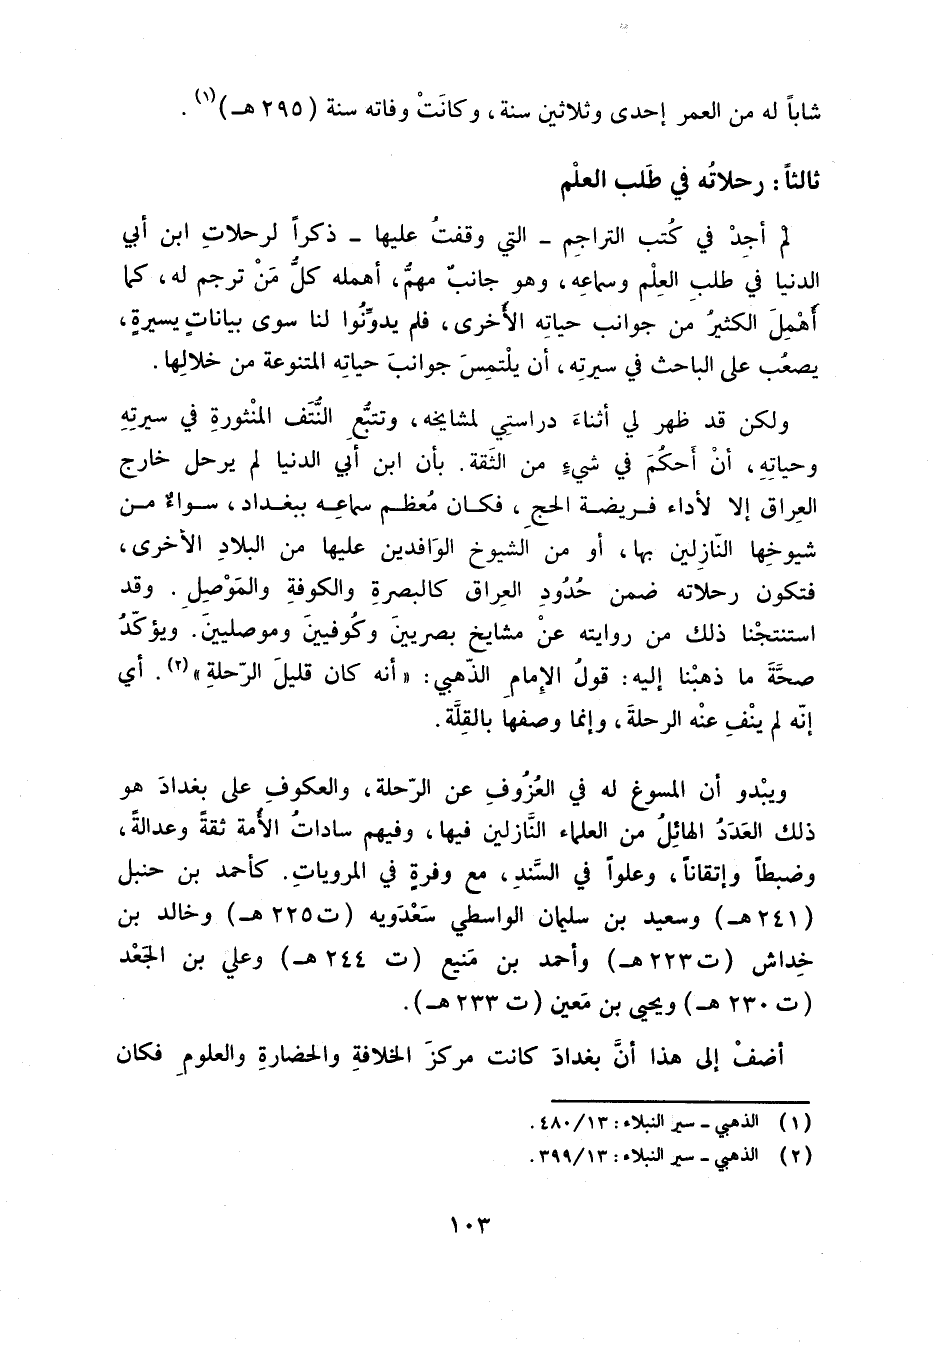 شاباً له من العمر إحدى وثلاثين سنة، وكانَتْ وفاته سنة (٢٩٥ هـ)(١).
ثالثاً: رحلاتُه في طَلب العلْم
لم أجدْ في كُتب التراجم - التي وقفتُ عليها - ذكراً لرحلاتِ ابن أبي
الدنيا في طلبِ العِلْم وسماعِه، وهو جانبٌ مهمٌّ، أهمله كلُّ مَنْ ترجم له، كما
أُهْمِلَ الكثيرُ من جوانب حياتِه الأُخرى، فلم يدوِّنُوا لنا سوى بياناتٍ يسيرةٍ،
يصعُب على الباحث في سيرتِه، أن يلْتمِسَ جوانبَ حياتِه المتنوعة من خلالِها.
ولكن قد ظهر لي أثناءَ دراستِي لمشايخه، وتتبُّعِ النُّتَف المنْثورةِ في سيرتِهِ
وحياتِهِ، أنْ أَحكُمَ في شيءٍ من الثَقة. بأن ابن أبي الدنيا لم يرحل خارج
العِراق إلا لأداء فريضة الحجِ، فكان مُعظم سماعِه ببغداد، سواءٌ من
شيوخِها النّازِلين بها، أو من الشيوخ الوَافدين عليها من البلادِ الأخرى،
فتكون رحلاته ضمن حُدُودِ العِراق كالبصرةِ والكوفةِ والمَوْصِلِ. وقد
استنتجْنا ذلك من روايته عنْ مشايخ بصريينَ وكُوفيينَ وموصليينَ. ويؤكّدُ
صحَّةَ ما ذهبْنا إليه: قولُ الإِمامِ الذّهبي: «أنه كان قليلَ الرّحلةِ»(٢). أي
إنّه لم ينْفِ عنْه الرحلةَ، وإنما وصفها بالقِلَّة.
ويبْدو أن المسوغ له في العُزُوفِ عن الرّحلة، والعكوفِ على بغدادَ هو
ذلك العَدَدُ الهائِلُ من العلماء النَّازلين فيها، وفيهم ساداتُ الأُمة ثقةً وعدالةً،
وضبطاً وإتقاناً، وعلواً في السَّندِ، مع وفرةٍ في المروياتِ. كأحمد بن حنبل
(٢٤١ هـ) وسعيد بن سليمان الواسطي سَعْدَويه (ت٢٢٥ هـ) وخالد بن
خِداش (ت٢٢٣ هـ) وأحمد بن مَنيع (ت ٢٤٤ هـ) وعلي بن الجَعْد
(ت ٢٣٠ هـ) ويحيى بن مَعين (ت ٢٣٣ هـ).
أضفْ إلى هذا أنَّ بغدادَ كانت مركزَ الخلافةِ والحضارةِ والعلومِ فكان
(١) الذهبي - سير النبلاء: ٤٨٠/١٣.
(٢) الذهبي - سير النبلاء: ٣٩٩/١٣.
١٠٣